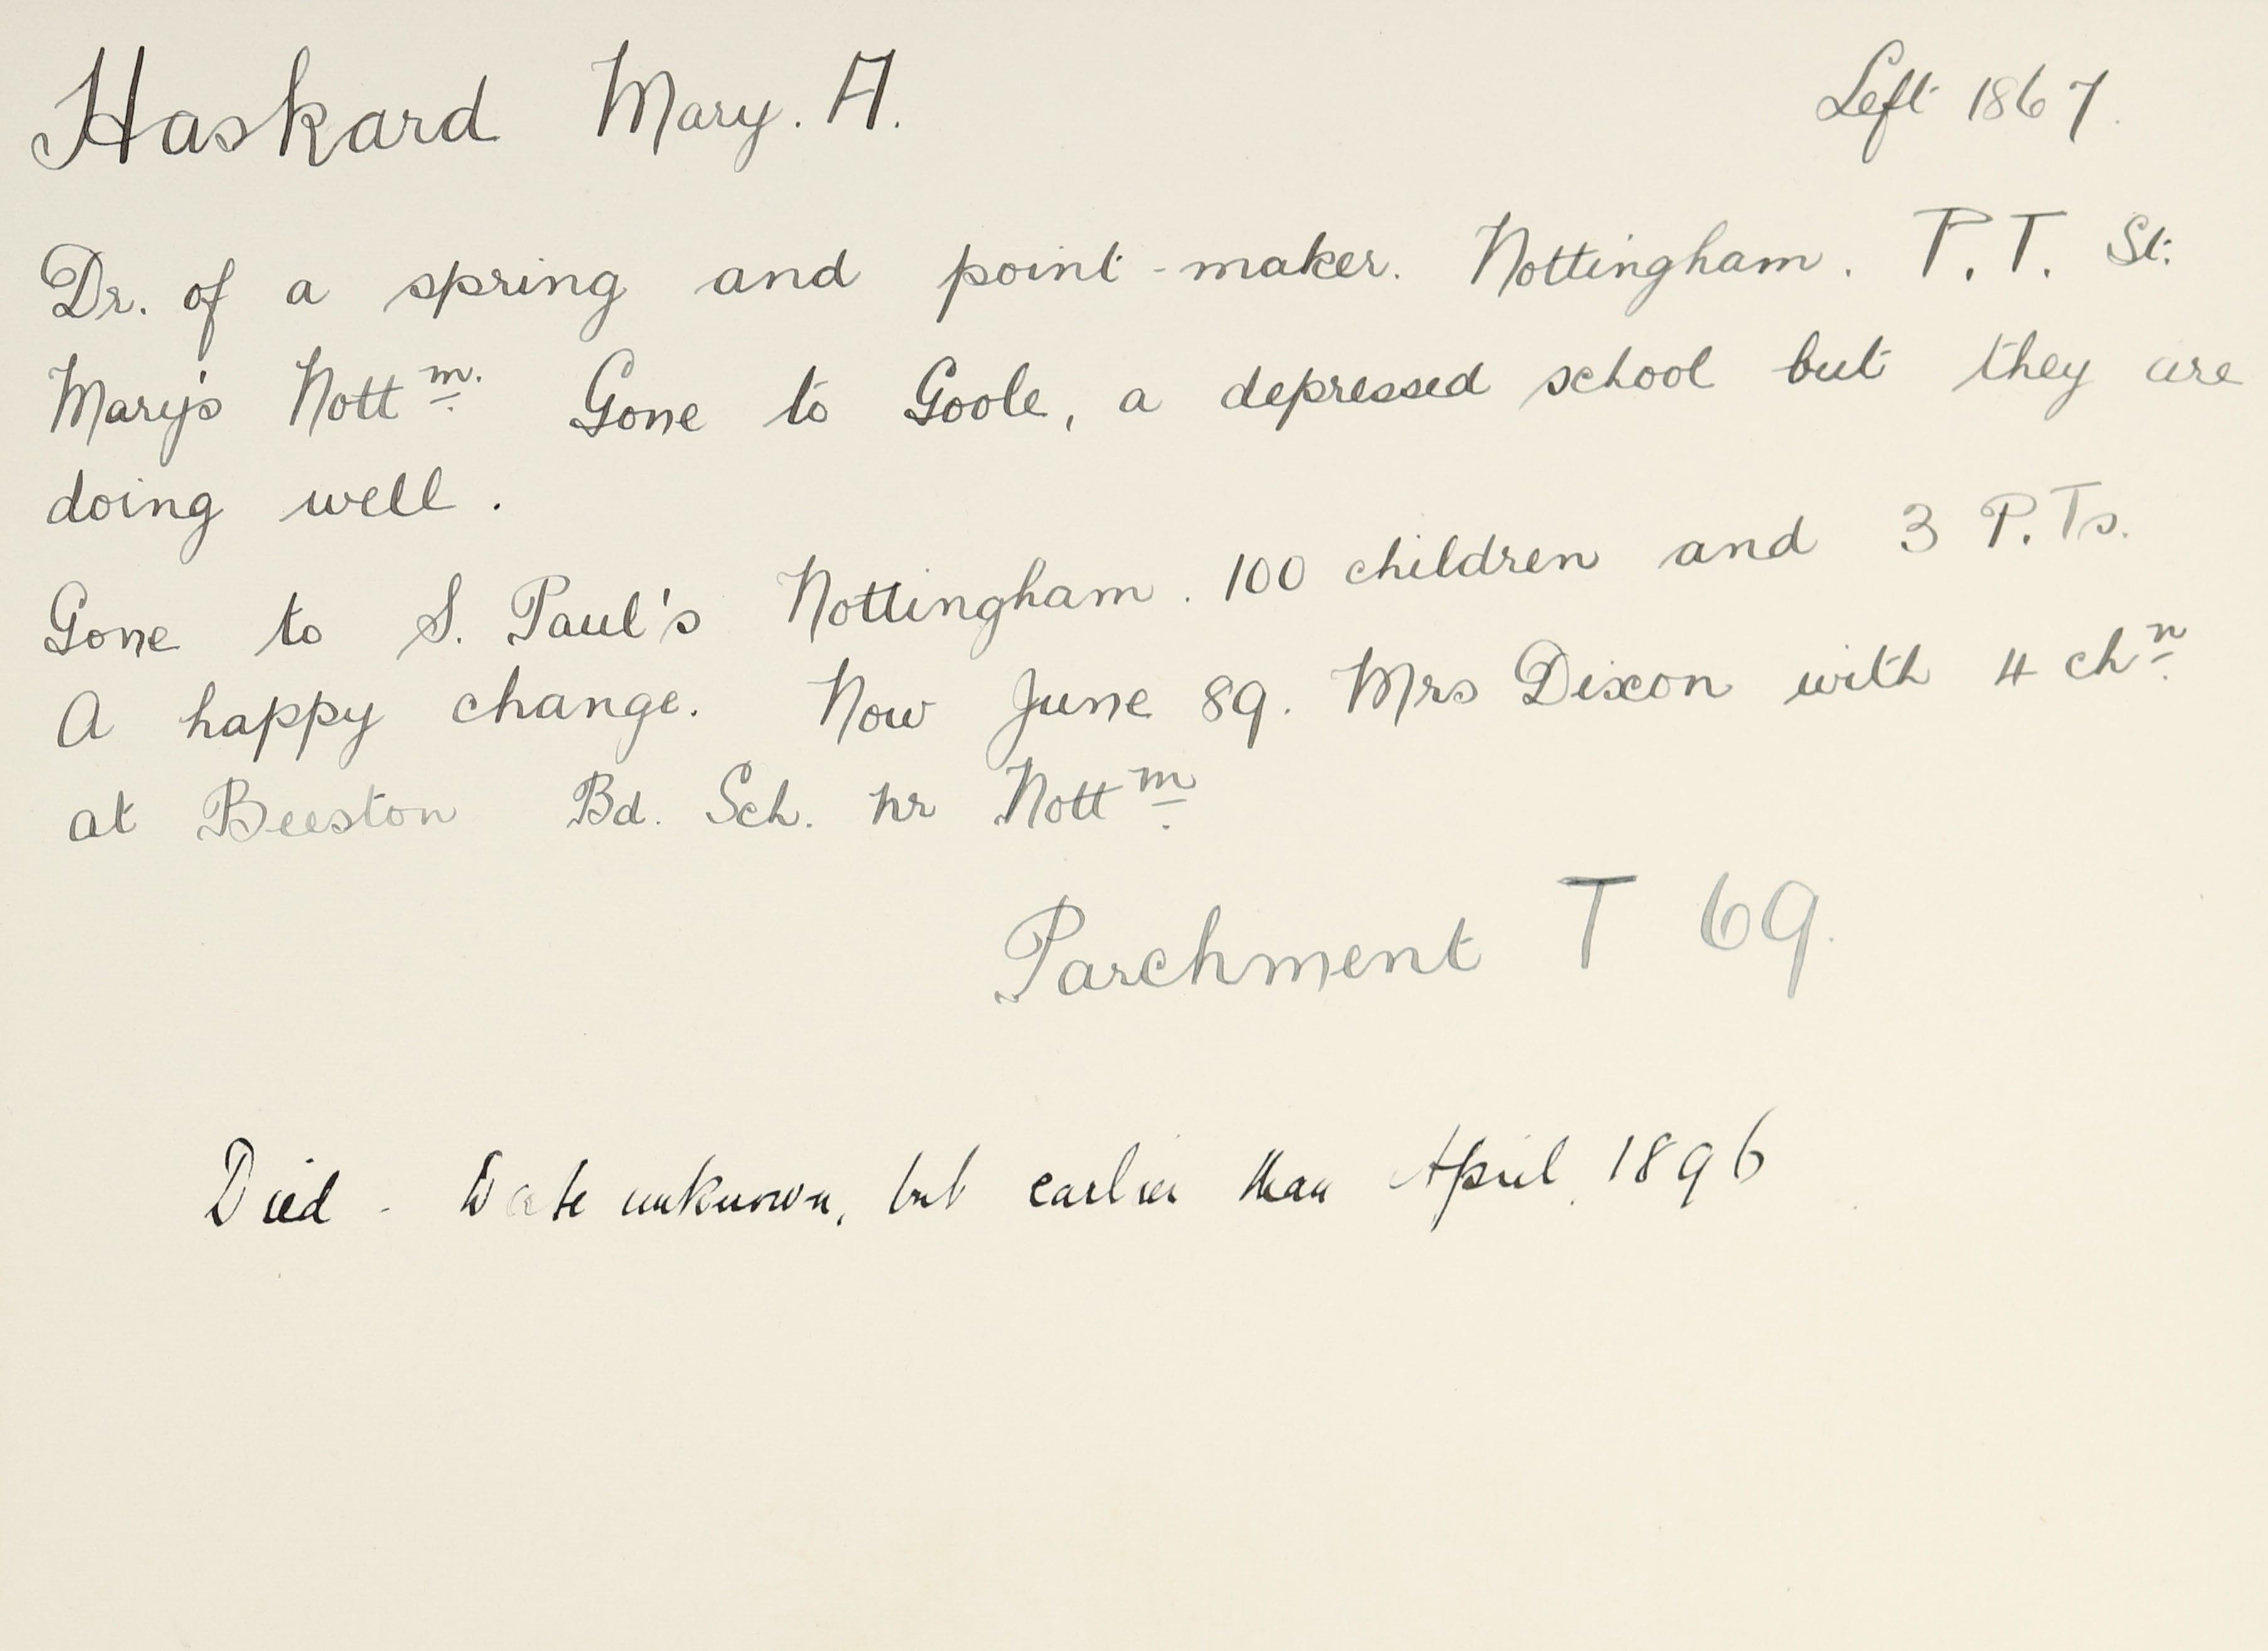 Haskard Mary. A. Left 1867.
Dr. of a spring and point-maker. Nottingham. P.T. St.
Mary's Nottm. Gone to Goole, a depressed school but they are
doing well.
Gone to S. Paul's Nottingham. 100 children and 3 P.Ts.
A happy change. Now June 89. Mrs Dixon with 4 chn.
at Beeston Bd. Sch. nr Nottm.
Parchment T 69.
Died - Date unknown, but earlier than April 1896